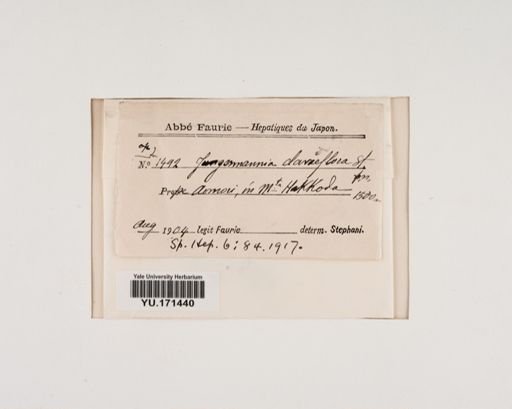 Abbé Faurie — Hepatiques du Japon.
No. 1492 Jungermannia claviflora St.
Prope Aomori, in Mt. Hakkoda 1500m
Aug 1904 legit Faurie determ. Stephani.
Sp. Hep. 6: 84. 1917.
Yale University Herbarium
YU.171440